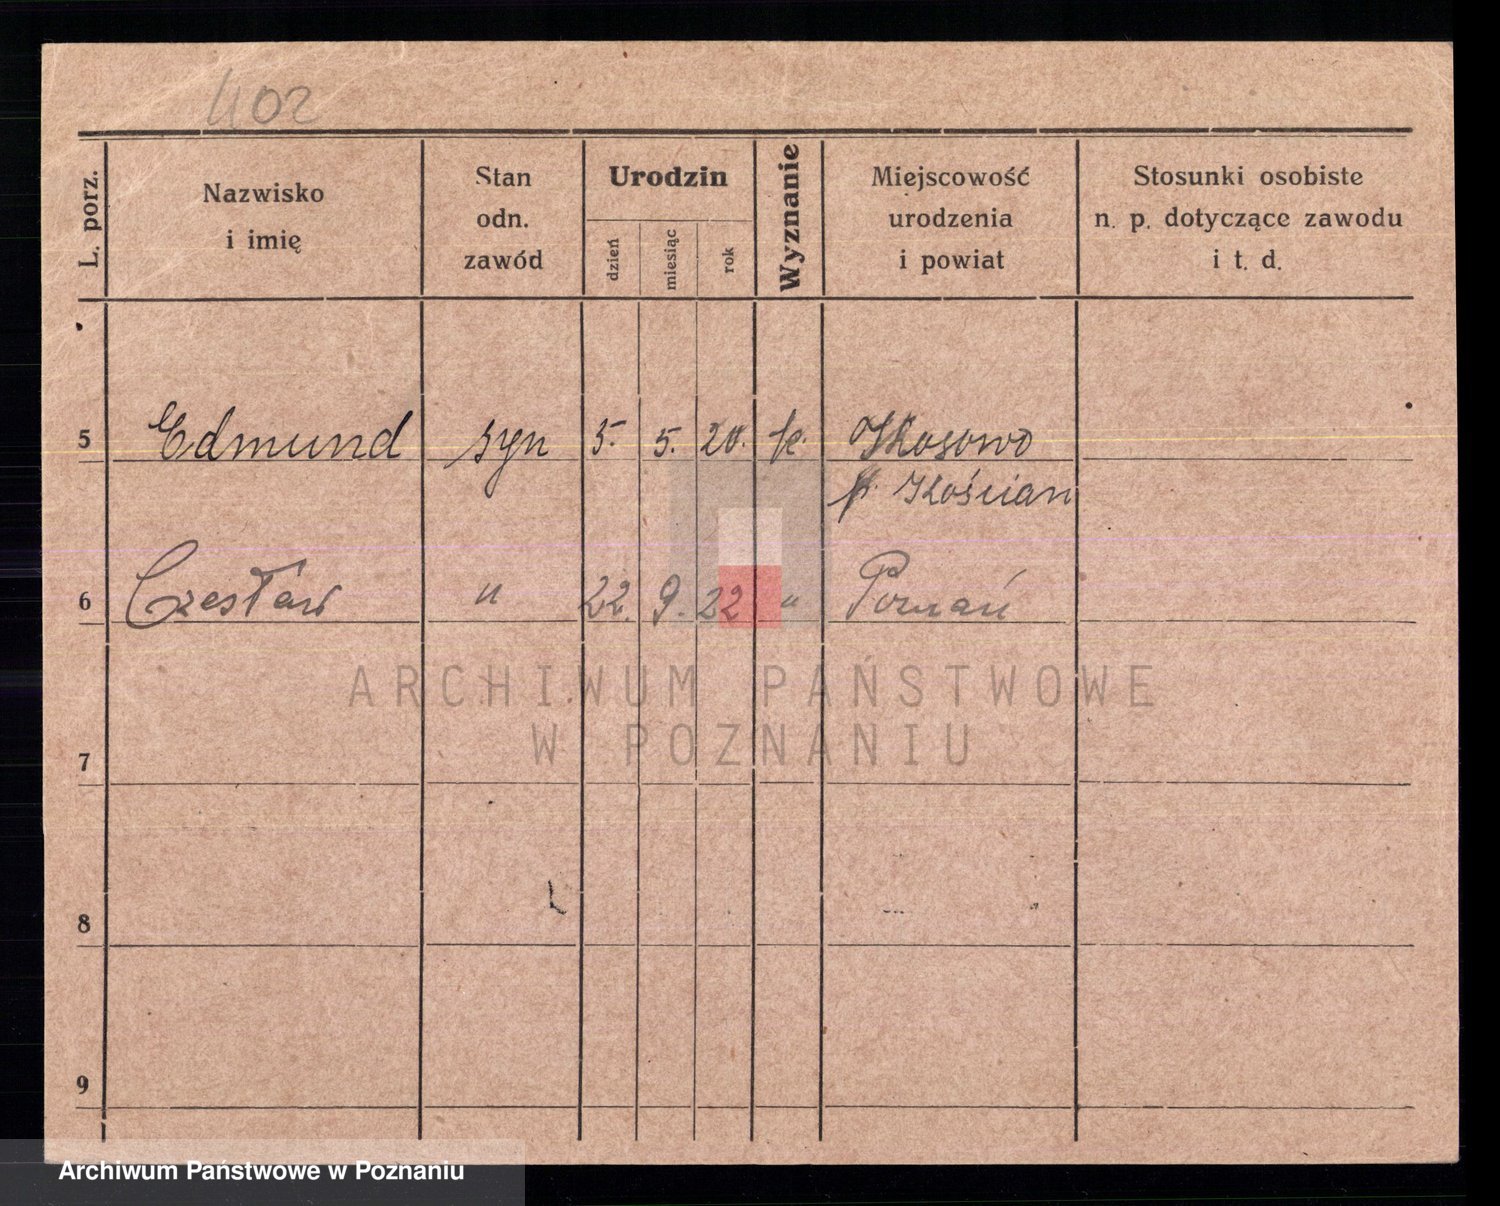 402
L. porz.
Nazwisko
i imię
Stan
odn.
zawód
Urodzin
dzień
miesiąc
rok
Wyznanie
Miejscowość
urodzenia
i powiat
Stosunki osobiste
n. p. dotyczące zawodu
i t. d.
5 Edmund syn 5. 5. 20. k. Kosowo
p. Kościan
6 Czesław " 22. 9. 22 " Poznań
ARCHIWUM PAŃSTWOWE
W POZNANIU
7
8
9
Archiwum Państwowe w Poznaniu